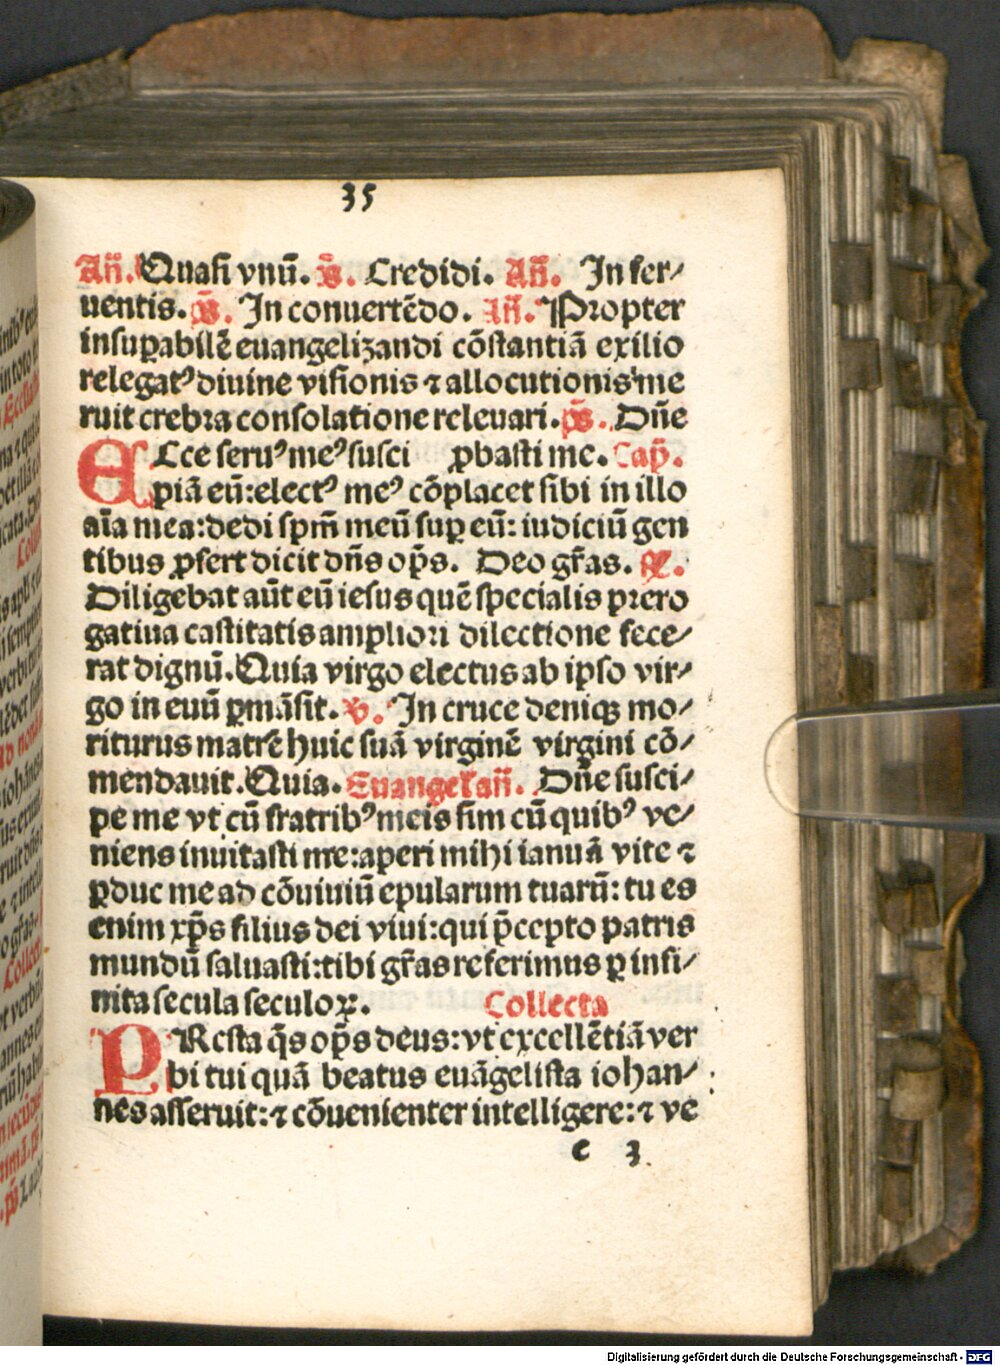 35
Añ. Quasi vnū. p̄s. Credidi. Añ. In fer⸗
uentis. p̄s. In conuertēdo. Añ. Propter
insuꝑabilē euangelizandi cōstantiā exilio
relegatꝰ diuine visionis ⁊ allocutionis me
ruit crebra consolatione releuari. p̄s. Dn̄e
ECce seruꝰ meꝰ susci ꝓbasti me. Cap̄.
piā eū: electꝰ meꝰ cōplacet sibi in illo
aīa mea: dedi spm̄ meū suꝑ eū: iudiciū gen
tibus ꝓfert dicit dn̄s op̄s. Deo gr̄as. ℞.
Diligebat aūt eū iesus quē specialis prero
gatiua castitatis ampliori dilectione fece⸗
rat dignū. Quia virgo electus ab ipso vir⸗
go in euū ꝑmāsit. ℣. In cruce deniqꝫ mo⸗
riturus matrē huic suā virginē virgini cō⸗
mendauit. Quia. Euangel̄ añ. Dn̄e susci⸗
pe me vt cū fratribꝰ meis sim cū quibꝰ ve⸗
niens inuitasti me: aperi mihi ianuā vite ⁊
ꝑduc me ad cōuiuiū epularum tuarū: tu es
enim xp̄s filius dei viui: qui p̄cepto patris
mundū saluasti: tibi gr̄as referimus ꝑ infi⸗
nita secula seculoꝝ. Collecta
PResta q̄s op̄s deus: vt excellētiā ver
bi tui quā beatus euāgelista iohan⸗
nes asseruit: ⁊ cōuenienter intelligere: ⁊ ve
e 3
Digitalisierung gefördert durch die Deutsche Forschungsgemeinschaft - DFG